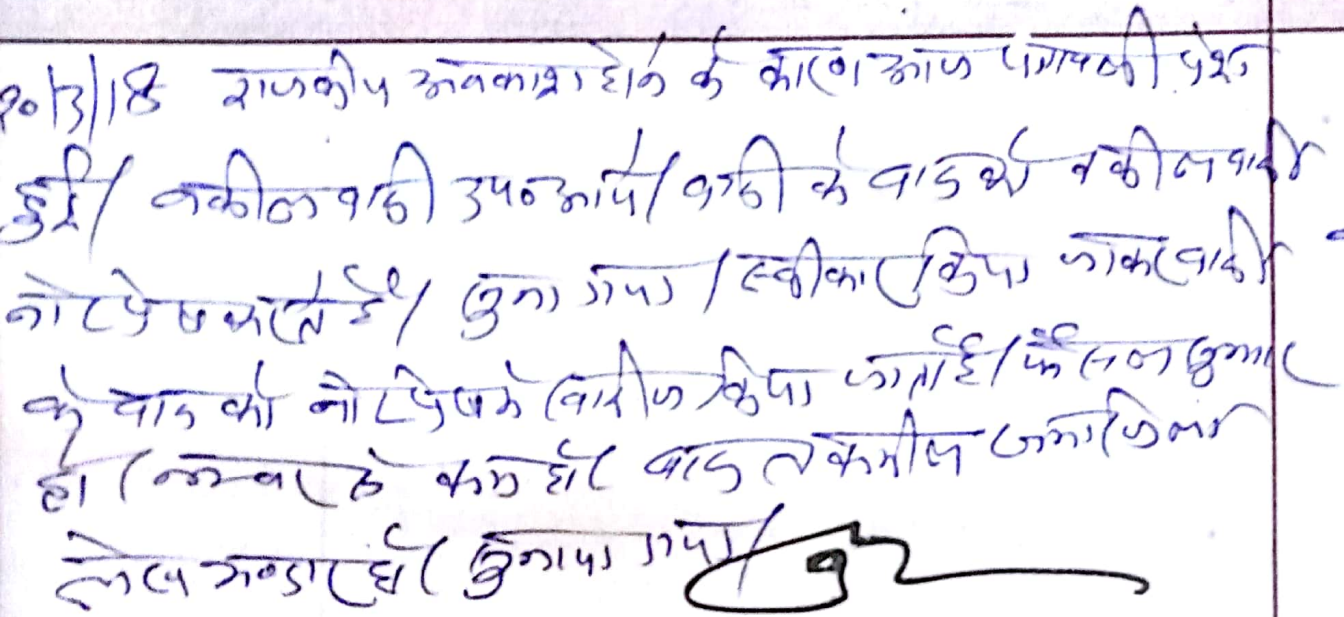 20/3/18 राजकीय अवकाश होने के कारण आज पत्रावली पेश
हुई/ वकील वादी उप० आये/ वादी के वाद को वकील वादी
नोट प्रेस करते है/ सुना गया/ स्वीकार किया जाकर वादी
के वाद को नोट प्रेस मे खारीज किया जाता है/ फैसल सुमार
हो/ नम्बर से कम हो/ वाद तकमील जमा जिला
लेख भण्डार हो/ सुनाया गया/